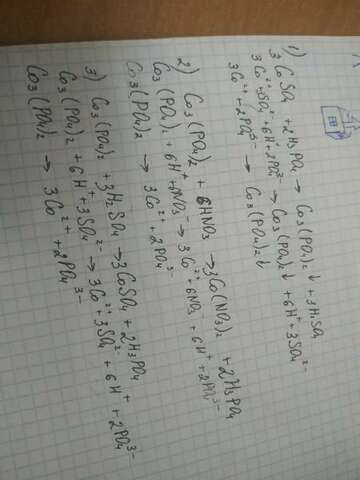 1) 3CoSO₄ + 2H₃PO₄ → Co₃(PO₄)₂↓ + 3H₂SO₄
3Co²⁺ + 3SO₄²⁻ + 6H⁺ + 2PO₄³⁻ → Co₃(PO₄)₂↓ + 6H⁺ + 3SO₄²⁻
3Co²⁺ + 2PO₄³⁻ → Co₃(PO₄)₂↓
2) Co₃(PO₄)₂ + 6HNO₃ → 3Co(NO₃)₂ + 2H₃PO₄
Co₃(PO₄)₂ + 6H⁺ + 6NO₃⁻ → 3Co²⁺ + 6NO₃⁻ + 6H⁺ + 2PO₄³⁻
Co₃(PO₄)₂ → 3Co²⁺ + 2PO₄³⁻
3) Co₃(PO₄)₂ + 3H₂SO₄ → 3CoSO₄ + 2H₃PO₄
Co₃(PO₄)₂ + 6H⁺ + 3SO₄²⁻ → 3Co²⁺ + 3SO₄²⁻ + 6H⁺ + 2PO₄³⁻
Co₃(PO₄)₂ → 3Co²⁺ + 2PO₄³⁻